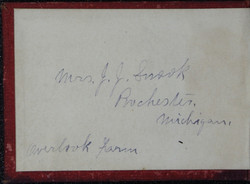 Mrs. J. J. Snook
Rochester.
Michigan.
Overlook Farm